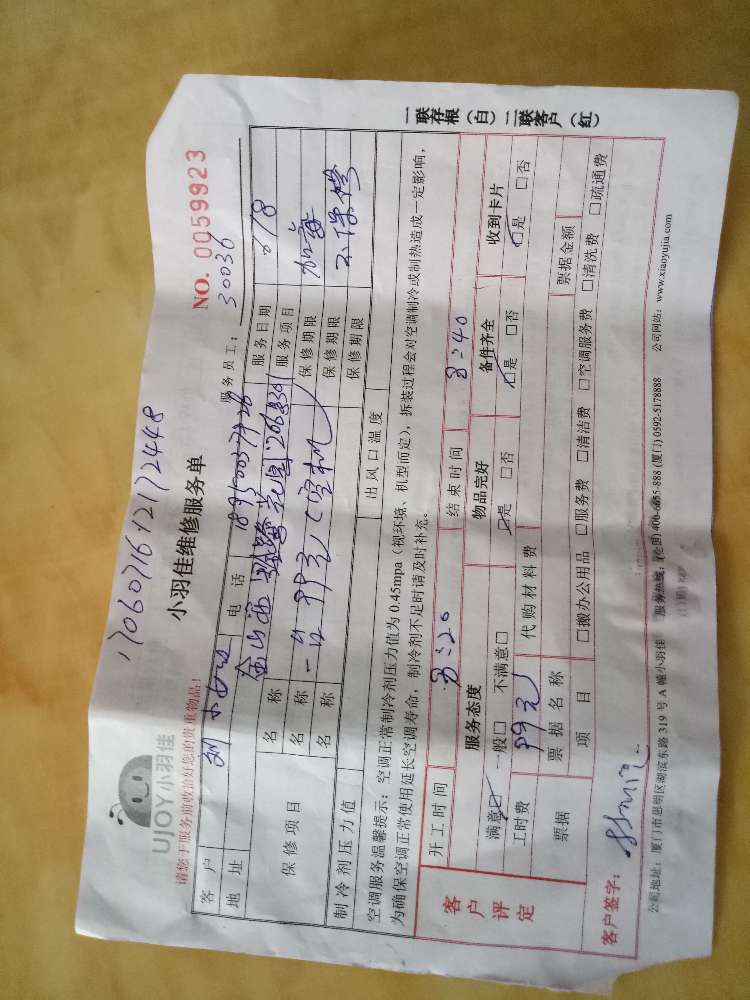 1706071612172448
UJOY小羽佳
小羽佳维修服务单
NO. 0059923
请您于服务前收洽好您的贵重物品!
服务员工: 30036
客户 刘 电话 18950057726 服务日期
地址 金山西 花园 服务项目 加毒
保修项目 名称 一台99元(空机) 保修期限 不保修
名称 保修期限
名称 保修期限
制冷剂压力值 出风口温度
空调服务温馨提示: 空调正常制冷剂压力值为 0.45mpa (视环境、机型而定), 拆装过程会对空调制冷或制热造成一定影响,
为确保空调正常使用延长空调寿命, 制冷剂不足时请及时补充。
客户评定
开工时间 8:20 结束时间 8:40
服务态度 物品完好 备件齐全 收到卡片
满意☑ 一般□ 不满意□ ☑是 □否 ☑是 □否 ☑是 □否
工时费 99元 代购材料费
票据 票据名称 票据金额
项目 □搬办公用品 □服务费 □清洁费 □空调服务费 □清洗费 □疏通费
客户签字:
公司地址: 厦门市思明区湖滨东路 319 号 A 幢小羽佳 服务热线: (全国) 400-6655-888 (厦门) 0592-5178888 公司网站: www.xiaoyujia.com
一联存根(白) 二联客户(红)